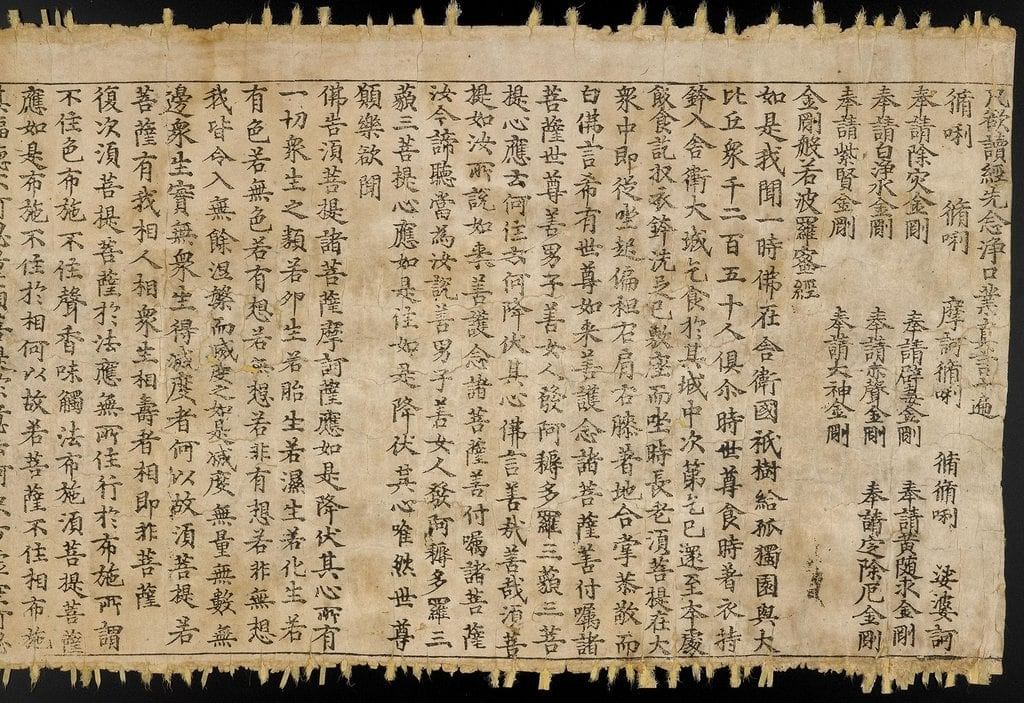 凡欲讀經先念淨口業真言一遍
脩唎 脩唎 摩訶脩唎 脩脩唎 娑婆訶
奉請除灾金剛 奉請辟毒金剛 奉請黄随求金剛
奉請白淨水金剛 奉請赤聲金剛 奉請定除厄金剛
奉請紫賢金剛 奉請大神金剛
金剛般若波羅蜜經
如是我聞一時佛在舍衛國祇樹給孤獨園與大
比丘衆千二百五十人俱尒時世尊食時著衣持
鉢入舍衛大城乞食於其城中次第乞已還至本處
飯食訖収衣鉢洗足已敷座而坐時長老湏菩提在大
衆中即從坐起偏袒右肩右膝著地合掌恭敬而
白佛言希有世尊如来善護念諸菩薩善付囑諸
菩薩世尊善男子善女人發阿耨多羅三藐三菩
提心應云何住云何降伏其心佛言善哉善哉湏菩
提如汝所說如来善護念諸菩薩善付囑諸菩薩
汝今諦聽當為汝說善男子善女人發阿耨多羅三
藐三菩提心應如是住如是降伏其心唯然世尊
願樂欲聞
佛告湏菩提諸菩薩摩訶薩應如是降伏其心所有
一切衆生之類若卵生若胎生若濕生若化生若
有色若無色若有想若無想若非有想若非無想
我皆令入無餘涅槃而滅度之如是滅度無量無數無
邊衆生實無衆生得滅度者何以故湏菩提若
菩薩有我相人相衆生相壽者相即非菩薩
復次湏菩提菩薩於法應無所住行於布施所謂
不住色布施不住聲香味觸法布施湏菩提菩薩
應如是布施不住於相何以故若菩薩不住相布施